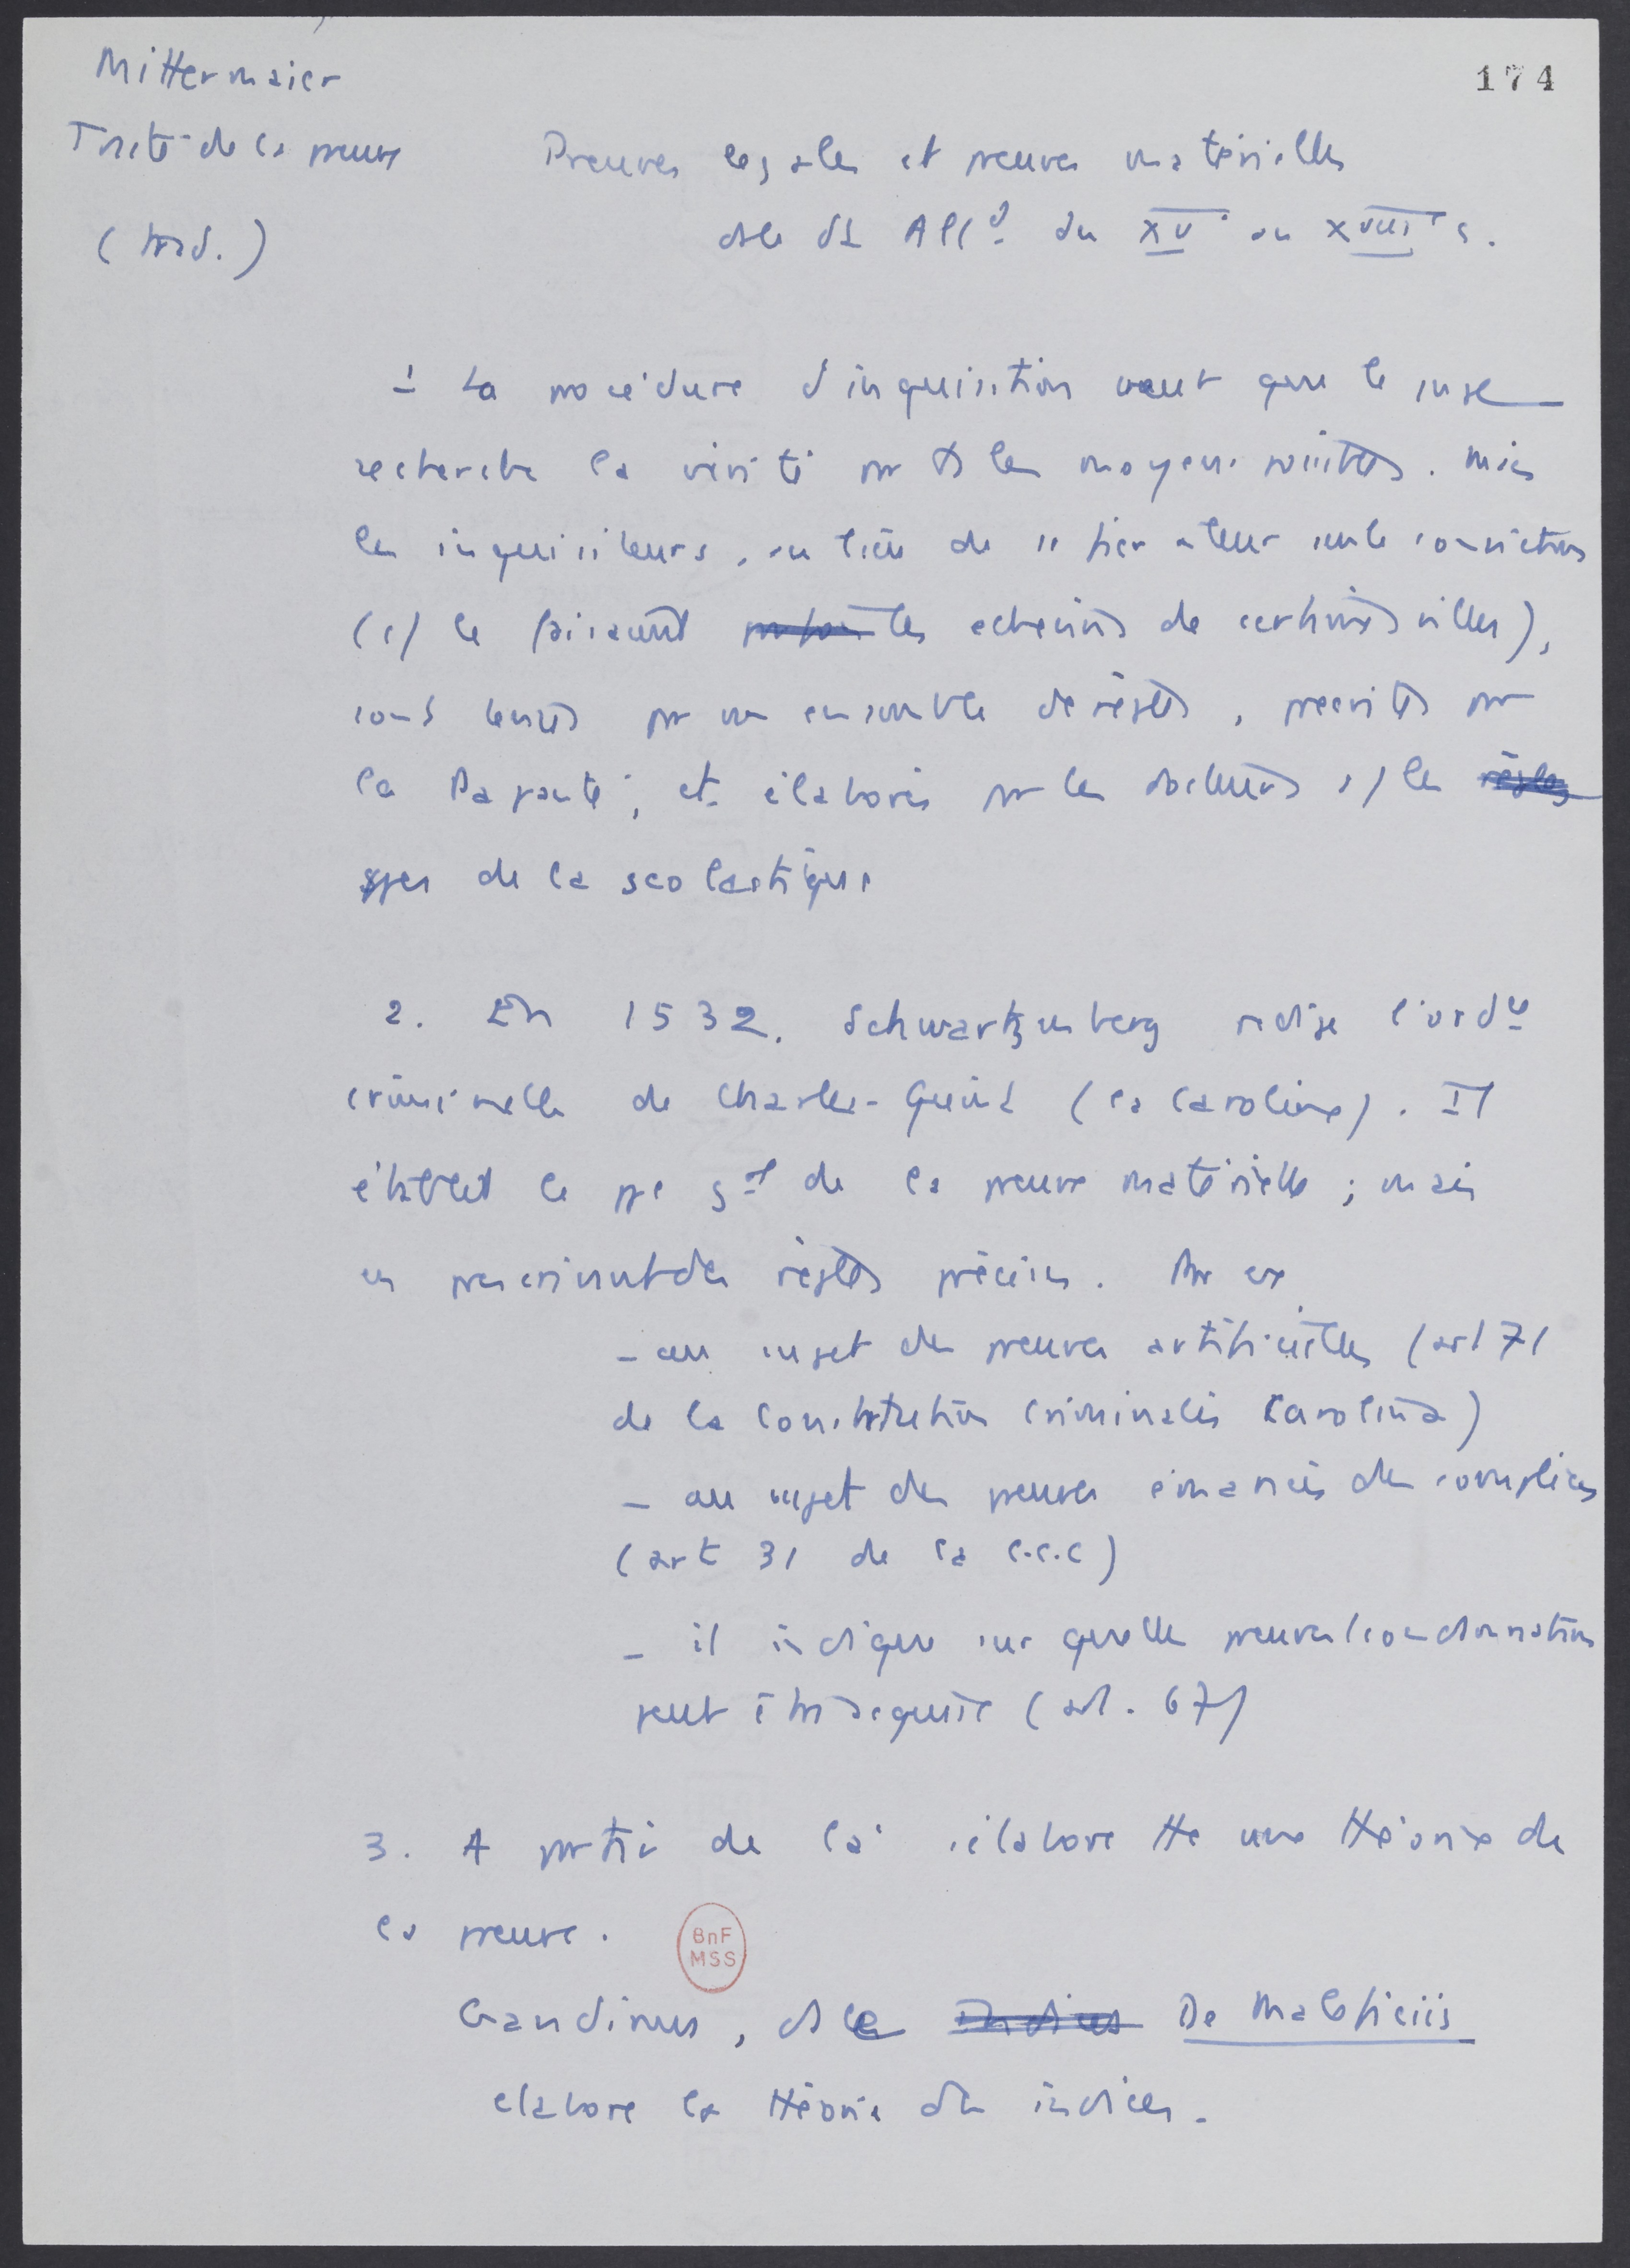 174
Mittermaier
Traité de la preuve
(trad.)
Preuves légales et preuves matérielles
ds le dt Alld du XVe au XVIIIe s.
1 La procédure d'inquisition veut que le juge
recherche la vérité par ts les moyens possibles. Mais
les inquisiteurs, au lieu de se fier à leur seule conviction
(c/ le faisaient les échevins de certaines villes),
sont tenus par un ensemble de règles, prescrites par
la Papauté, et élaborées par les docteurs s/ les règles
ppes de la scolastique
2. En 1532. Schwartzenberg rédige l'ordce
criminelle de Charles-Quint (la Caroline). Il
établit le ppe gal de la preuve matérielle ; mais
en prescrivant des règles précises. Par ex
- au sujet des preuves artificielles (art 71
de la Constitution Criminalis Carolina)
- au sujet des preuves émanées des complices
(art 31 de la C.C.C)
- il indique sur quelles preuves condamnation
peut être acquise (art. 67)
3. A partir de là s'élabore tte une théorie de
la preuve.
BnF
MSS
Gandinus, ds le Indices De Maleficiis
elabore la théorie des indices.